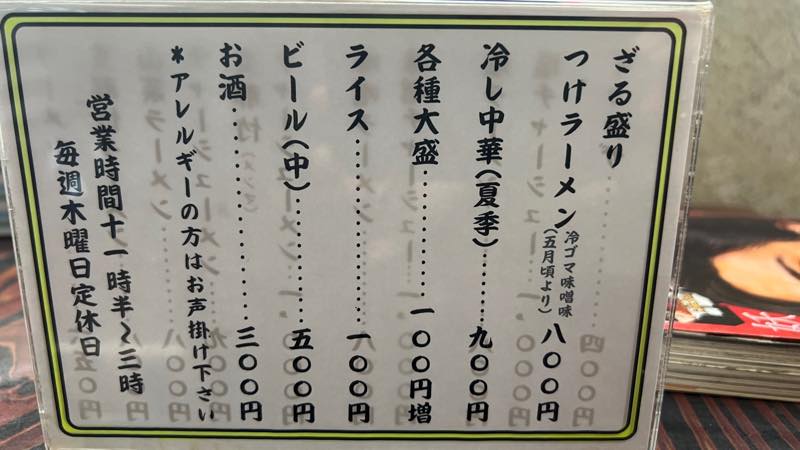 ざる盛り
つけラーメン 冷ゴマ味噌味(五月頃より) 八〇〇円
冷し中華(夏季)………九〇〇円
各種大盛……………一〇〇円増
ライス…………………一〇〇円
ビール(中)……………五〇〇円
お酒……………………三〇〇円
*アレルギーの方はお声掛け下さい
営業時間十一時半~三時
毎週木曜日定休日